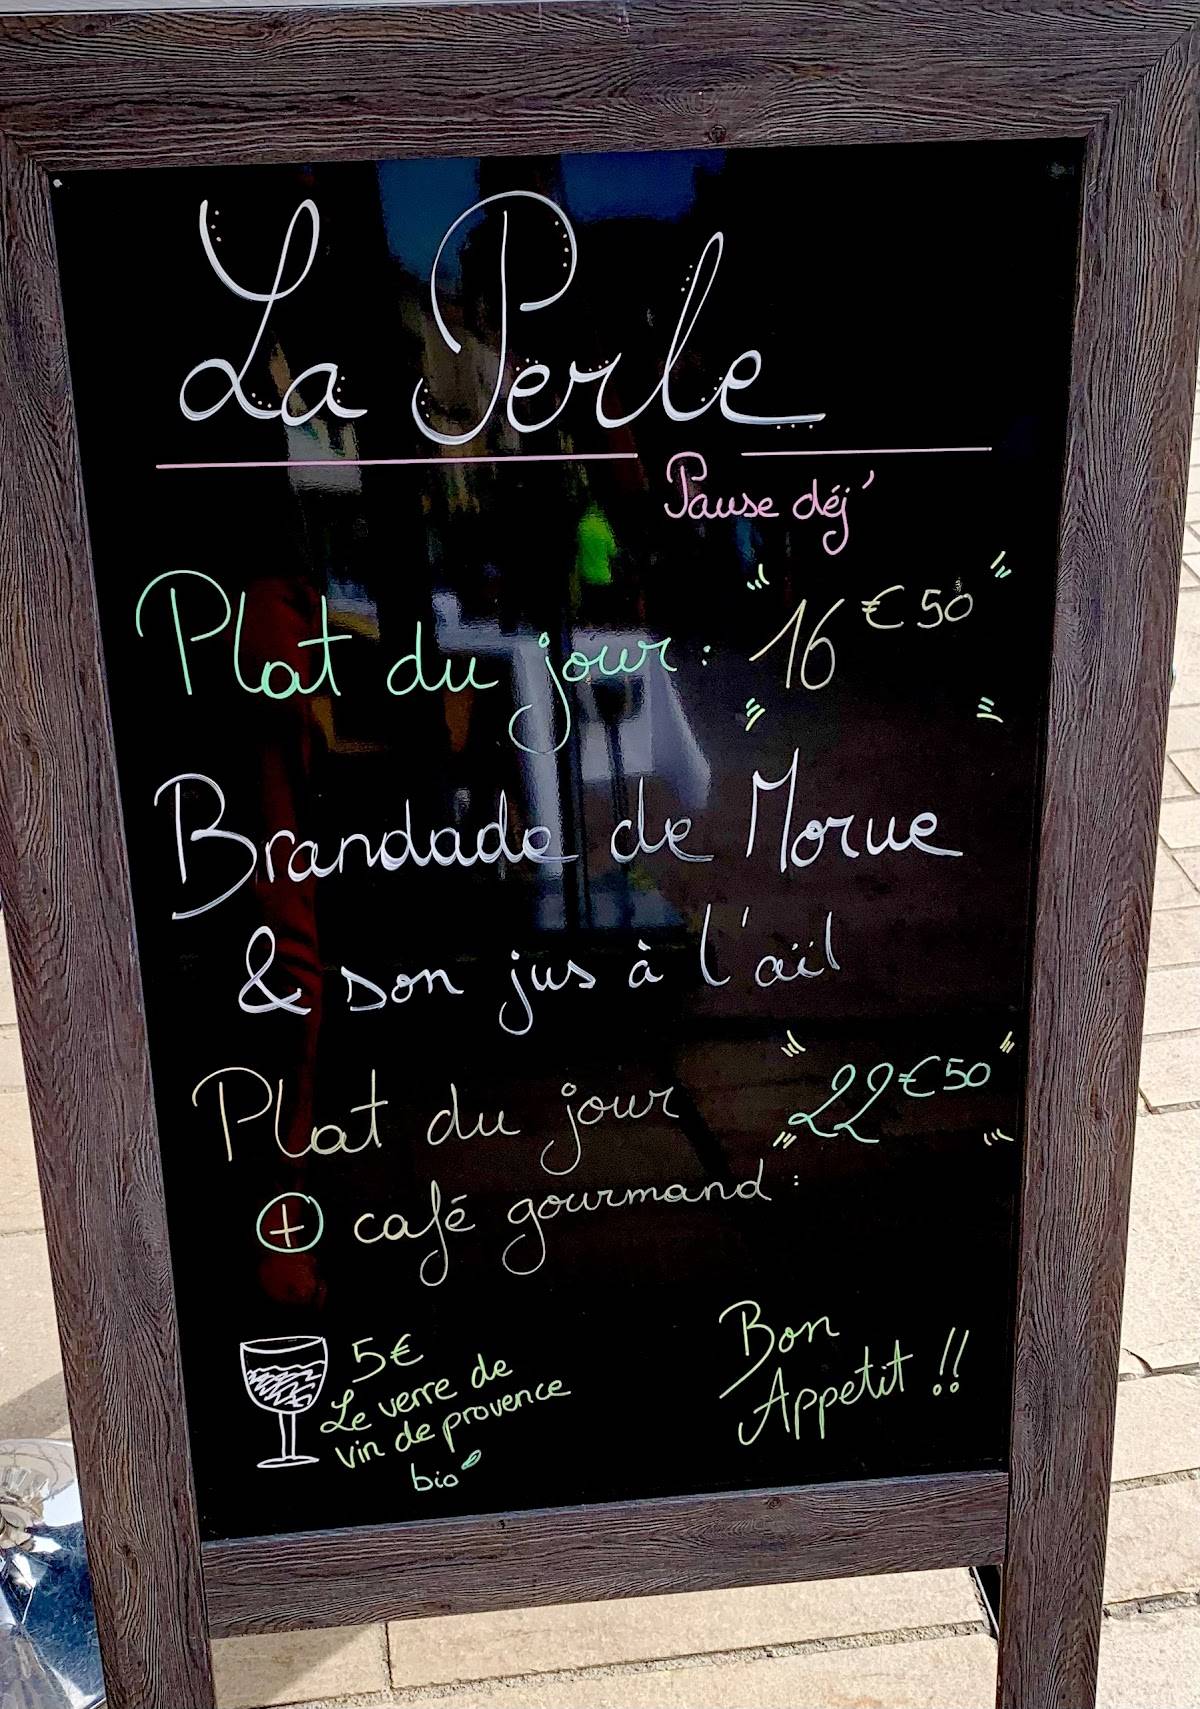 La Perle
Pause déj'
Plat du jour : 16€50
Brandade de Morue
& son jus à l'aïl
Plat du jour 22€50
+ café gourmand :
5€
Le verre de
vin de provence
bio
Bon
Appetit !!